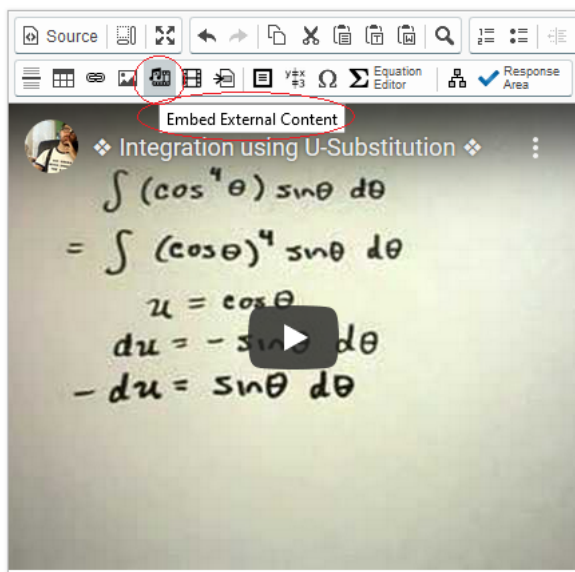 Source
Equation Editor
Response Area
Embed External Content
❖ Integration using U-Substitution ❖
∫ (cos⁴θ) sinθ dθ
= ∫ (cosθ)⁴ sinθ dθ
u = cosθ
du = - sinθ dθ
- du = sinθ dθ